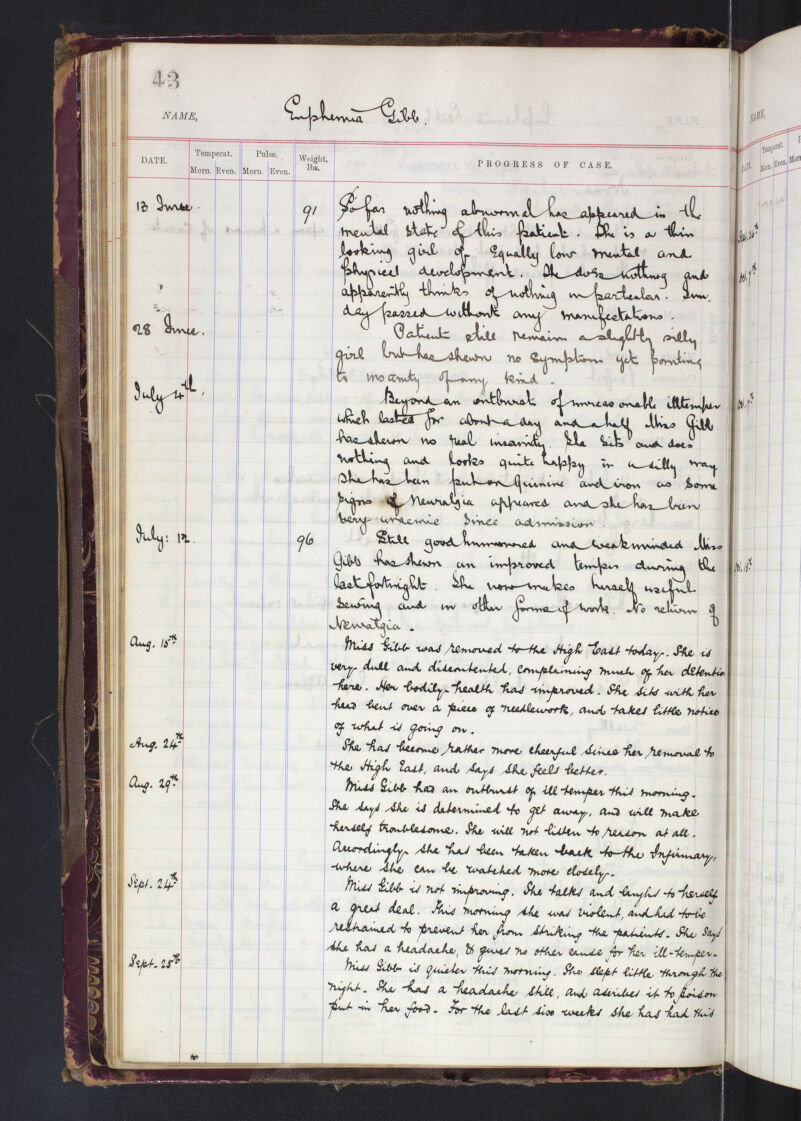 43
NAME, Euphemia Gibb.
DATE. Temperat. Pulse. Weight, lbs. PROGRESS OF CASE.
Morn. Even. Morn Even.
13 June. 91 So far nothing abnormal has appeared in the
mental state of this patient. She is a thin
looking girl of equally low mental and
physical development. She does nothing and
apparently thinks of nothing in particular.
day passed without any manifestations.
28 June. Patient still remains a slightly silly
girl but has shewn no symptoms yet pointing
to insanity of any kind.
July 4th. Beyond an outburst of unreasonable illtemper
which lasted for about a day and a half Miss Gibb
has shewn no real insanity. She sits and does
nothing and looks quite happy in a silly way
She has been put on Quinine and iron as some
signs of Neuralgia appeared and she has been
very anaemic since admission.
July: 12. 96 Still good humoured and weakminded Miss
Gibb has shewn an improved temper during the
last fortnight. She now makes herself useful
sewing and in other forms of work. No return of
Neuralgia.
Aug. 15th Miss Gibb was removed to the High East today. She is
very dull and discontented, complaining much of her detention
here. Her bodily health has improved. She sits with her
head bent over a piece of needlework, and takes little notice
of what is going on.
Aug. 24th She has become rather more cheerful since her removal to
the High East, and says she feels better.
Aug. 29th Miss Gibb had an outburst of ill temper this morning.
She says she is determined to get away, and will make
herself troublesome. She will not listen to reason at all.
Accordingly she has been taken back to the Infirmary,
where she can be watched more closely.
Sept. 24th Miss Gibb is not improving. She talks and laughs to herself
a great deal. This morning she was violent, and had to be
restrained to prevent her from striking the patients. She says
she has a headache, & gives no other cause for her ill-temper.
Sept. 25th Miss Gibb is quieter this morning. She slept little through the
night. She has a headache still, and ascribes it to poison
put in her food. For the last six weeks she has had this
NAME,
DATE. Temperat.
Morn. Even. Morn